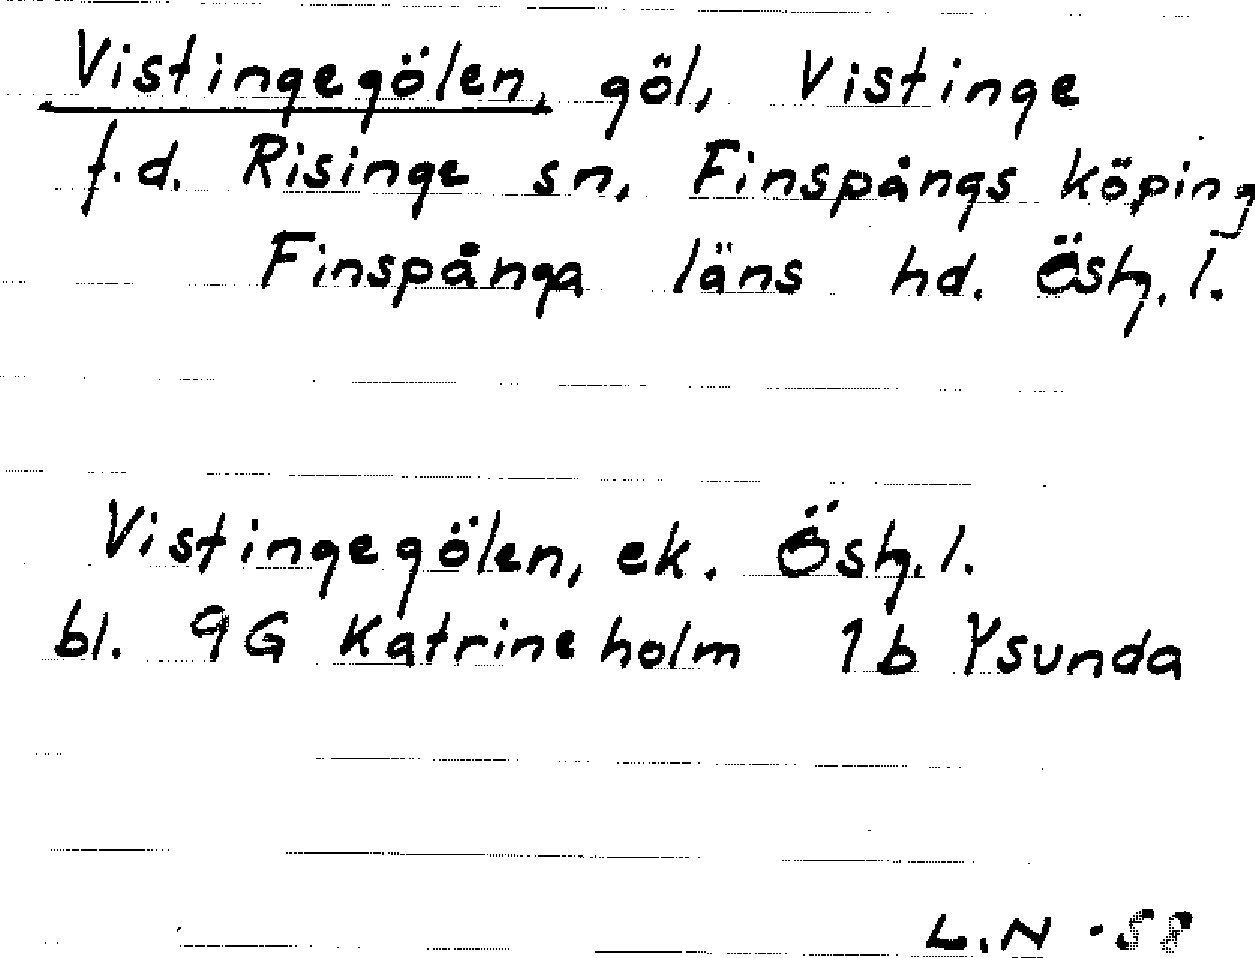 Vistingegölen, göl, Vistinge
f.d. Risinge sn, Finspångs köping
Finspånga läns hd. Östg. l.
Vistingegölen, ek. Östg. l.
bl. 9G Katrineholm 1b Ysunda
L.N -58